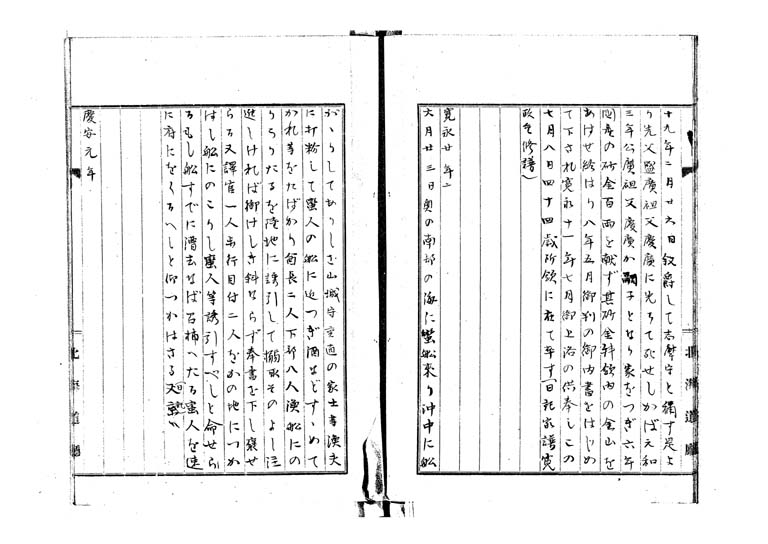 十九年二月廿六日叙爵して志摩守と稱す是よ
り先父盛廣祖父慶廣に先ちて死せしかば元和
三年公廣祖父慶廣か嗣子となり家をつぎ六年
砂金百両を献ず其砂金幷領内の金山を
あけせ給はり八年五月御判の御内書をはじめ
て下され寛永十一年七月御上洛の供奉しこの
七月八日四十四歳所領に在て卒す(日記家譜寛
政重修譜)
寛永廿年
六月廿三日奥の南部の海に蠻船来り沖中に船
がゝりしてありしを山城守重直の家士等漁夫
に打粉して蠻人の船に近つぎ酒などすゝめて
かれ等をたばかり酋長二人下部八人漁船にの
りうつりたるを陸地に誘引して搦取そのよし注
進しければ御けしき斜ならず奉書を下し褒せ
らる又譯官一人歩行目付二人をかの地につか
はし船にのこりし蠻人等誘引すべしと命せら
るもし船すでに漕去なば召捕へたる蠻人を速
に府におくるへしと仰つかはさる
慶安元年
北海道廳
北海道廳